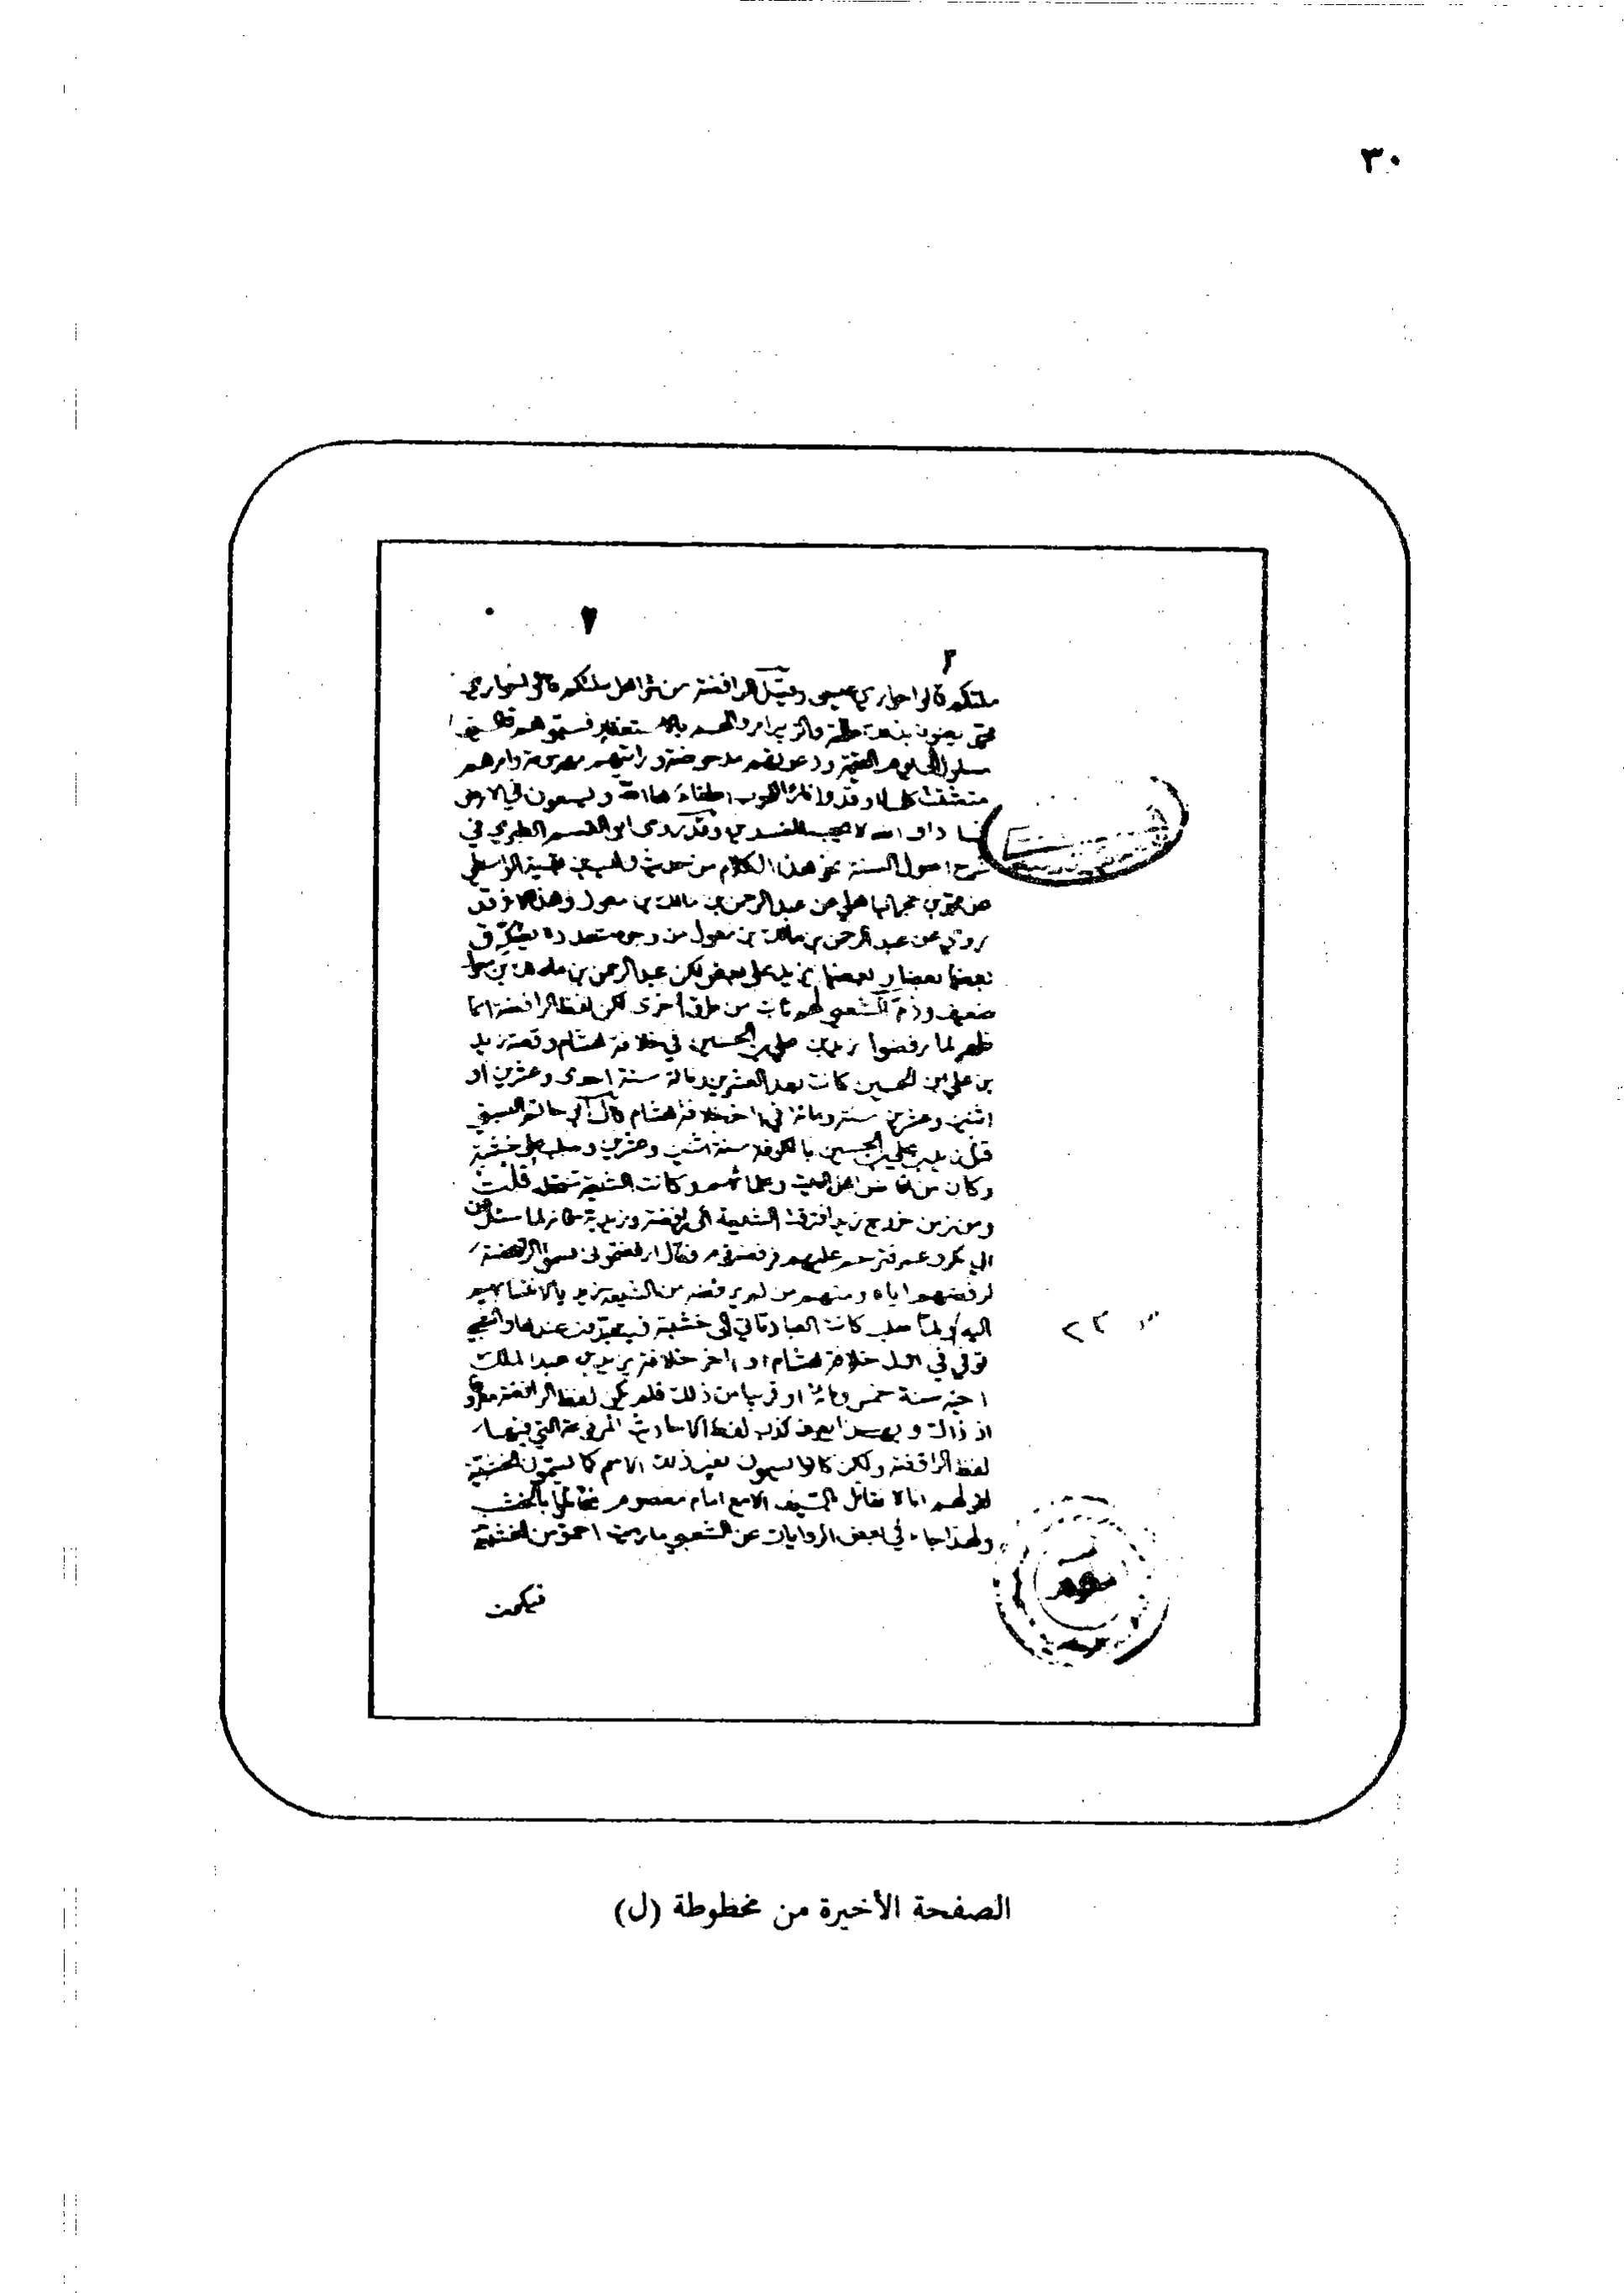 ٣٠
٧
٣
ملتكم قالوا حواري عيسى وقيل للرافضة من شر اهل ملتكم قالوا حواري
محمد يعنون بذلك طلحة والزبير امروا لهم بالاستغفار فسبوهم فالسيف
مسلول الى يوم القيمة ودعوتهم مدحوضة ورايتهم مهزومة وامرهم
متشتت كلما اوقدوا نارا للحرب اطفاءها الله ويسعون في الارض
فسادا والله لا يحب المفسدين وقد روى ابو القسم الطبري في
شرح اصول السنة نحو هذا الكلام من حديث وهب بن بقية الواسطي
عن محمد بن حجر الباهلي عن عبد الرحمن بن مالك بن مغول وهذا الاثر قد
روي عن عبد الرحمن بن مالك بن مغول من وجوه متعددة يصدق
بعضها بعضا وبعضها يزيد على بعض لكن عبد الرحمن بن مالك بن مغول
ضعيف وذم الشعبي لهم ثابت من طرق اخرى لكن لفظ الرافضة انما
ظهر لما رفضوا زيد بن علي بن الحسين في خلافة هشام وقصة زيد
بن علي بن الحسين كانت بعد العشرين ومائة سنة احدى وعشرين او
اثنين وعشرين سنة ومائة في اخر خلافة هشام قال ابو حاتم البستي
قتل زيد بن علي بن الحسين بالكوفة سنة اثنين وعشرين وصلب على خشبة
وكان من افاضل اهل البيت وعلمائهم وكانت الشيعة تنتحله قلت
ومن زمن خروج زيد افترقت الشيعة الى رافضة وزيدية فانه لما سئل عن
ابي بكر وعمر فترحم عليهما رفضه قوم فقال ارفضتموني فسموا الرافضة
لرفضهم اياه ومنهم من لم يرفضه من الشيعة زيديا لانتسابهم
اليه ولما صلب كانت العباد تاتي الى خشبته فيتعبدون عندها والشعبي
توفي في اول خلافة هشام او اخر خلافة يزيد بن عبد الملك
اخيه سنة خمس ومائة او قريبا من ذلك فلم يكن لفظ الرافضة معروفا
اذ ذاك وبهذا يعرف كذب لفظ الاحاديث المرفوعة التي فيها
لفظ الرافضة ولكن كانوا يسمون بغير ذلك الاسم كما يسمون الخشبية
لقولهم انا لا نقاتل بالسيف الا مع امام معصوم فقاتلوا بالخشب
ولهذا جاء في بعض الروايات عن الشعبي ما رايت احمق من الخشبية
فيكون
الصفحة الأخيرة من مخطوطة (ل)